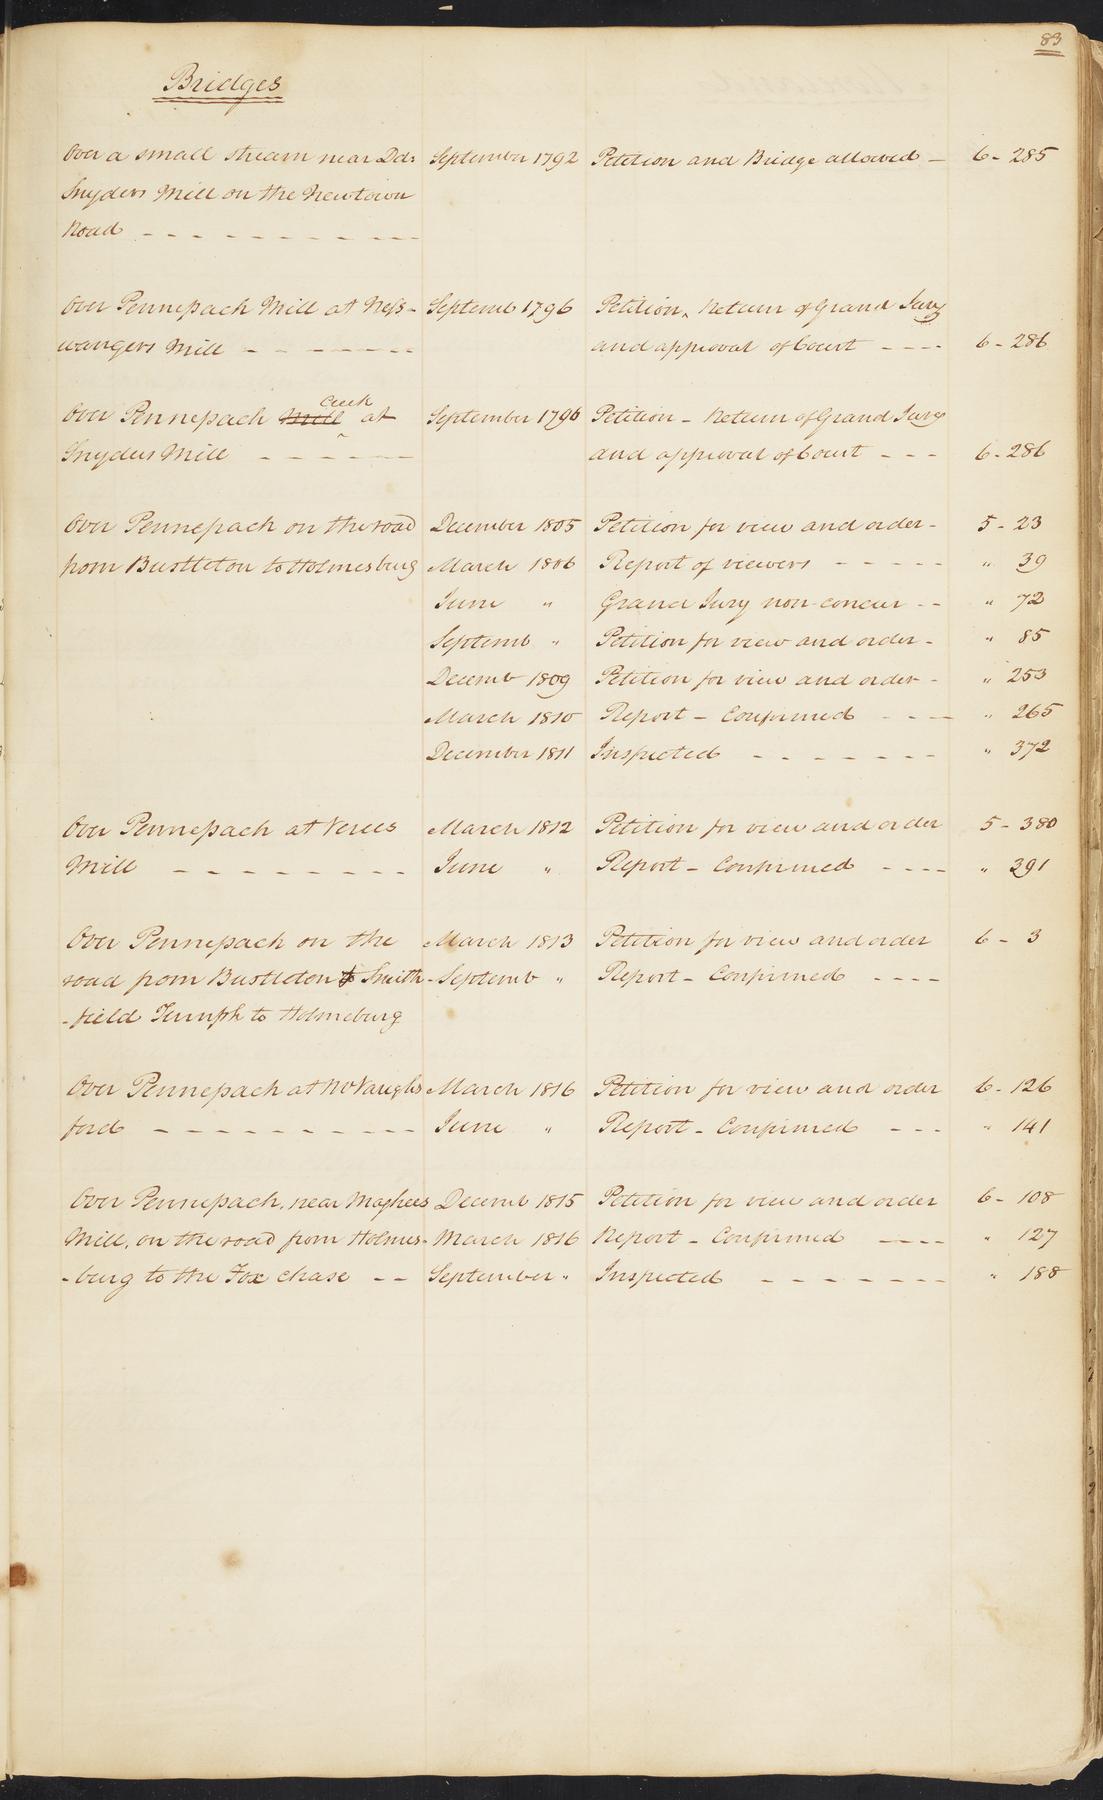 83
Bridges
Over a small stream near Dd: September 1792 Petition and Bridge allowed – 6 - 285
Snyders Mill on the Newtown
Road - - - - - - - - - - -
Over Pennepack Mill at Neſs- Septemb 1796 Petition, Return of Grand Jury
wangers Mill - - - - - - - and approval of Court - - - - 6 - 286
Over Pennepack Mill Creek at September 1796 Petition - Return of Grand Jury
Snyders Mill - - - - - - and approval of Court - - - 6 - 286
Over Pennepack on the road December 1805 Petition for view and order - 5 - 23
from Bustleton to Holmesburg March 1806 Report of viewers - - - - - " 39
June " Grand Jury non-concur - - " 72
Septemb " Petition for view and order - " 85
Decemb 1809 Petition for view and order - " 253
March 1810 Report - Confirmed - - - " 265
December 1811 Inspected - - - - - - - " 372
Over Pennepack at Verees March 1812 Petition for view and order 5 - 380
Mill - - - - - - - - June " Report - Confirmed - - - - " 391
Over Pennepack on the March 1813 Petition for view and order 6 - 3
road from Bustleton & Smith- Septemb " Report - Confirmed - - - -
-field Turnpk to Holmeburg
Over Pennepack at McVaughs March 1816 Petition for view and order 6 - 126
ford - - - - - - - - - - June " Report - Confirmed - - - " 141
Over Pennepack, near Maghees Decemb 1815 Petition for view and order 6 - 108
Mill, on the road from Holmes- March 1816 Report - Confirmed - - - - " 127
-burg to the Fox chase - - September " Inspected - - - - - - - - " 188